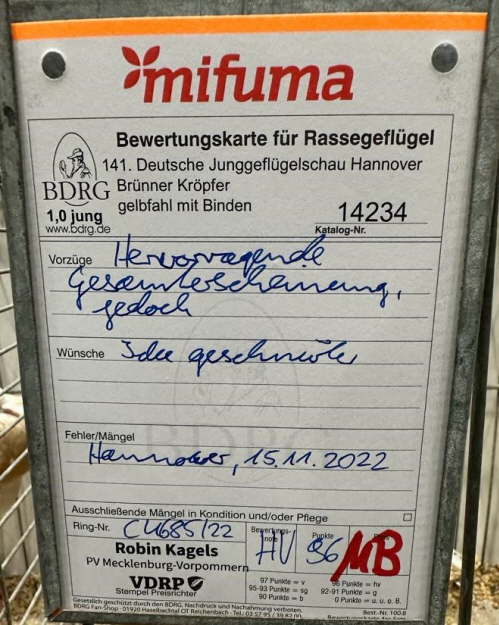 mifuma
Bewertungskarte für Rassegeflügel
141. Deutsche Junggeflügelschau Hannover
BDRG
Brünner Kröpfer
1,0 jung
gelbfahl mit Binden
14234
www.bdrg.de
Katalog-Nr.
Vorzüge Hervorragende
Gesamterscheinung,
jedoch
Wünsche Idee geschnürter
BDRG
Fehler/Mängel
Hannover, 15.11.2022
Ausschließende Mängel in Kondition und/oder Pflege
Ring-Nr. CU685/22
Bewertungs-note
Punkte
HV 96 MB
Robin Kagels
PV Mecklenburg-Vorpommern
VDRP
Stempel Preisrichter
97 Punkte = v
96 Punkte = hv
95-93 Punkte = sg
92-91 Punkte = g
90 Punkte = b
0 Punkte = u. o. B.
Gesetzlich geschützt durch den BDRG. Nachdruck und Nachahmung verboten.
Best.-Nr. 100.8